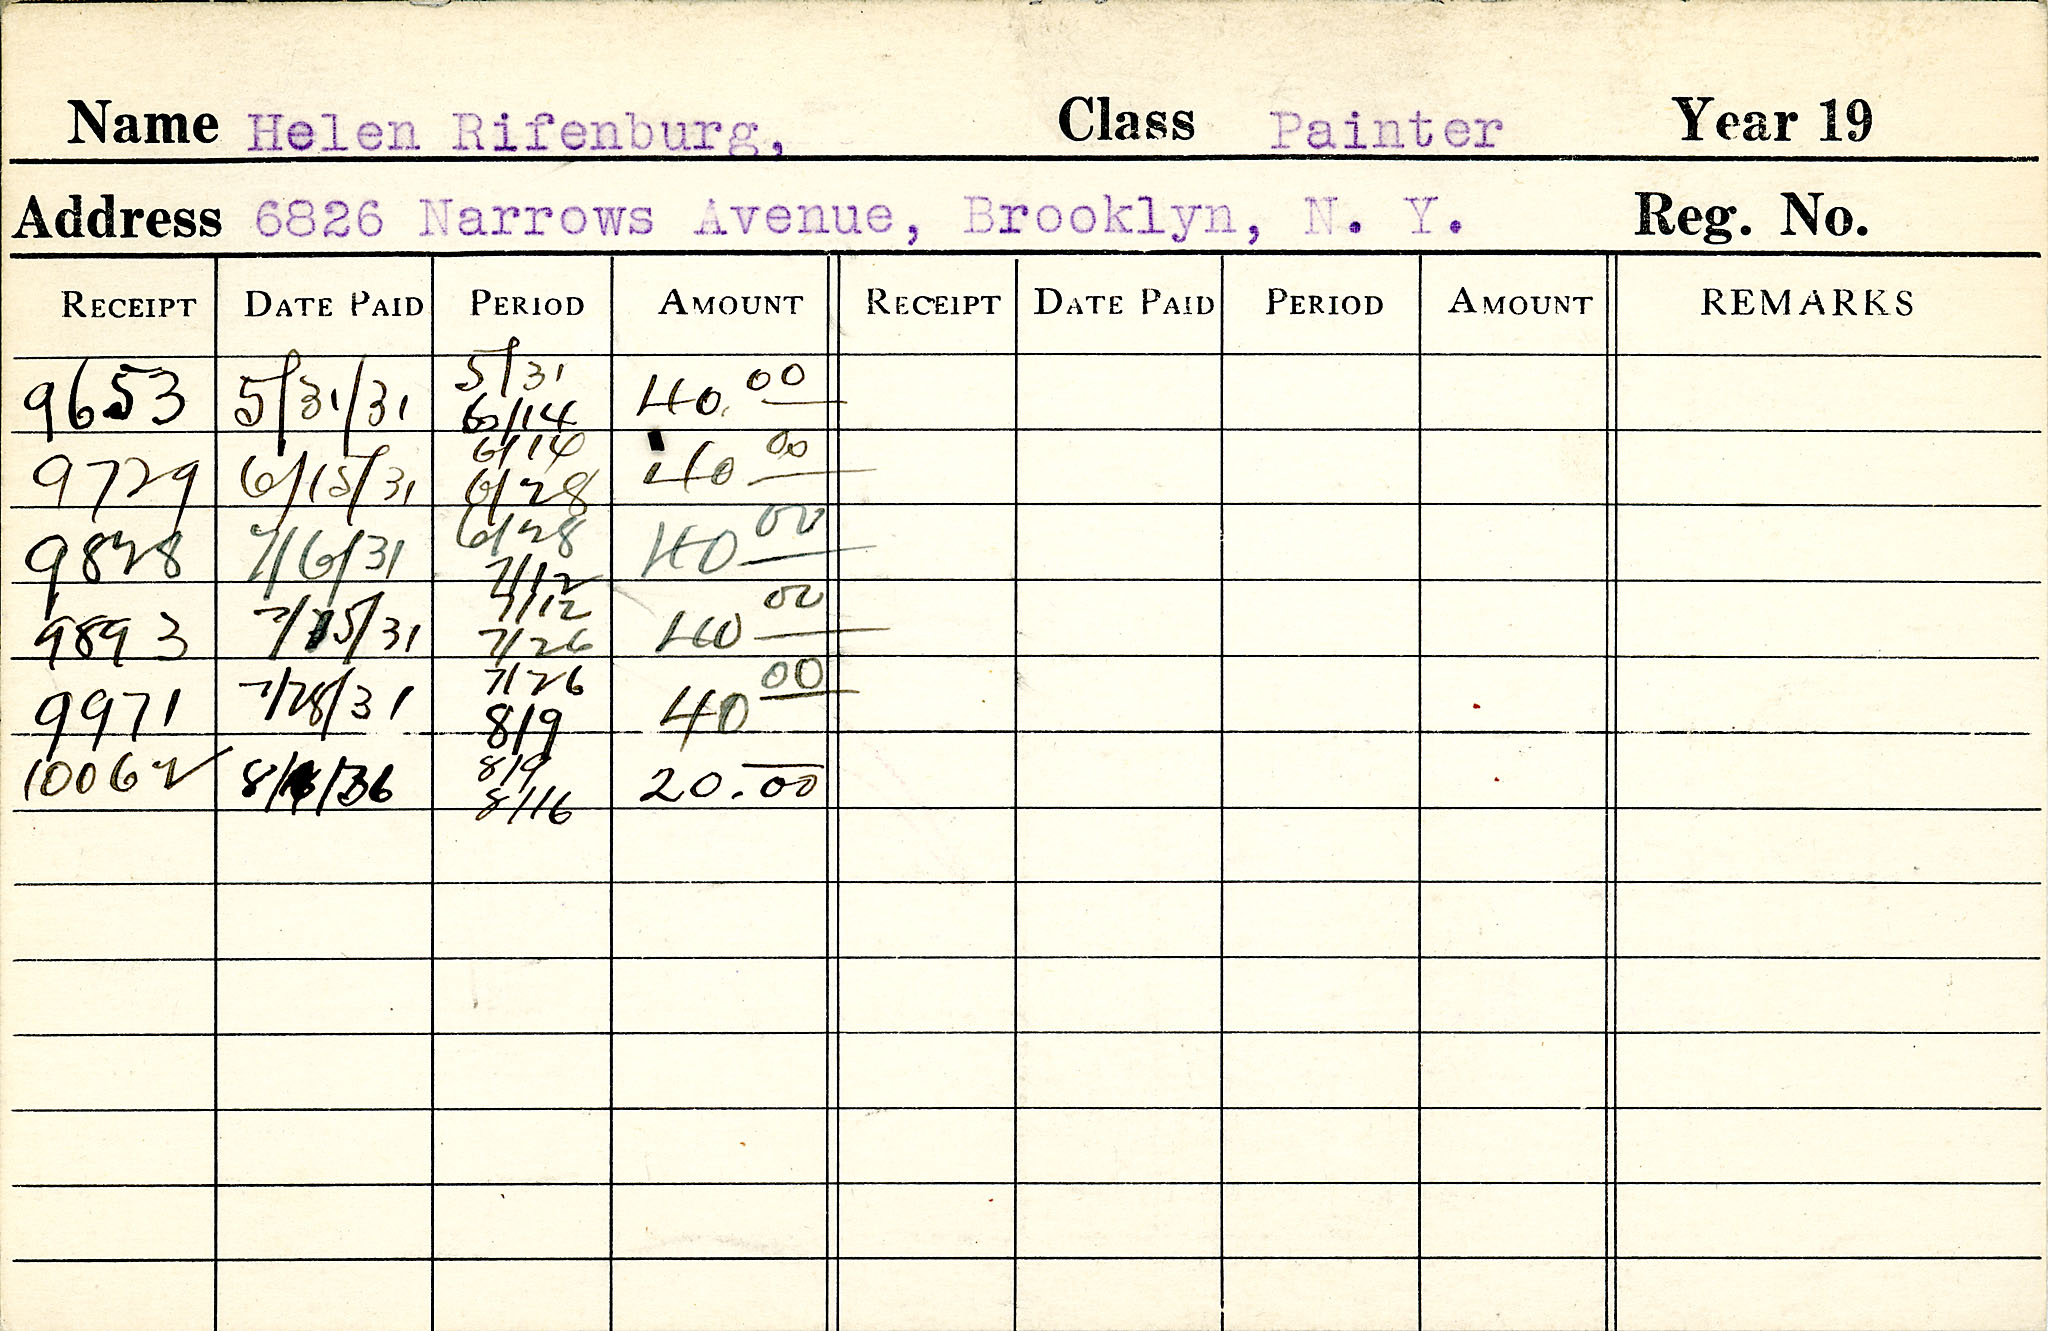 Name Helen Rifenburg, Class Painter Year 19
Address 6826 Narrows Avenue, Brooklyn, N. Y. Reg. No.
RECEIPT DATE PAID PERIOD AMOUNT RECEIPT DATE PAID PERIOD AMOUNT REMARKS
5/31
9653 5/31/31 40.00
6/14
6/14
9729 6/15/31 40 00
6/28
6/28
9828 7/6/31 40 00
7/12
7/12
9893 7/15/31 40 00
7/26
7/26
9971 7/28/31 40 00
8/9
8/9
10062 20.00
8/16